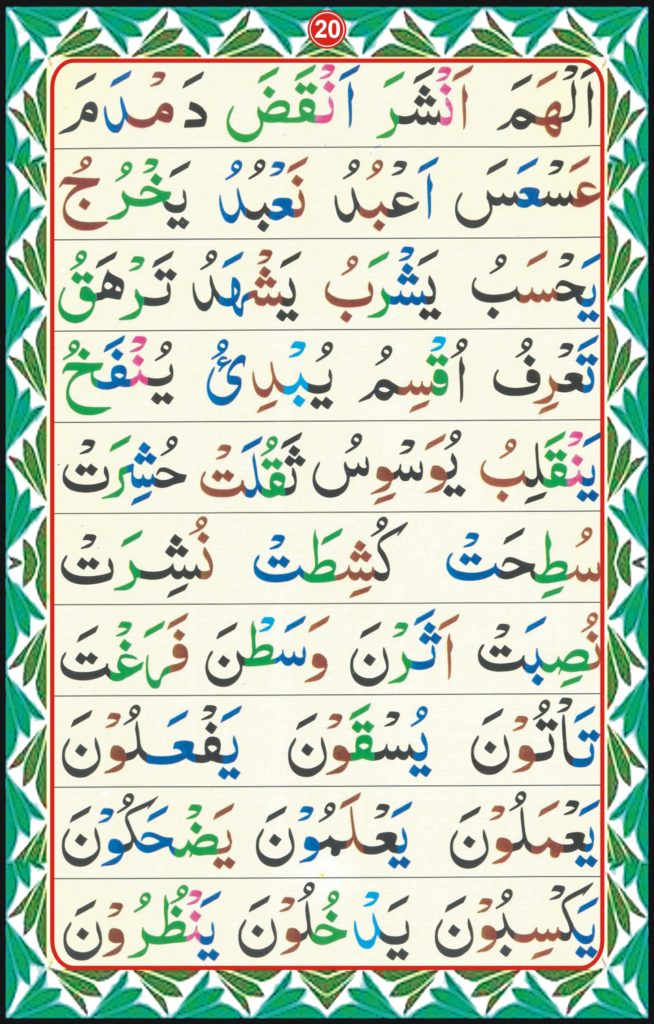 20
اَلْهَمَ اَنْشَرَ اَنْقَضَ دَمْدَمَ
عَسْعَسَ اَعْبُدُ نَعْبُدُ يَخْرُجُ
يَحْسَبُ يَشْرَبُ يَشْهَدُ تَرْهَقُ
تَعْرِفُ اُقْسِمُ يُبْدِئُ يُنْفَخُ
يَنْقَلِبُ يُوَسْوِسُ ثَقُلَتْ حُشِرَتْ
سُطِحَتْ كُشِطَتْ نُشِرَتْ
نُصِبَتْ اَثَرْنَ وَسَطْنَ فَرَغْتَ
تَاْتُوْنَ يُسْقَوْنَ يَفْعَلُوْنَ
يَعْمَلُوْنَ يَعْلَمُوْنَ يَضْحَكُوْنَ
يَكْسِبُوْنَ يَدْخُلُوْنَ يَنْظُرُوْنَ